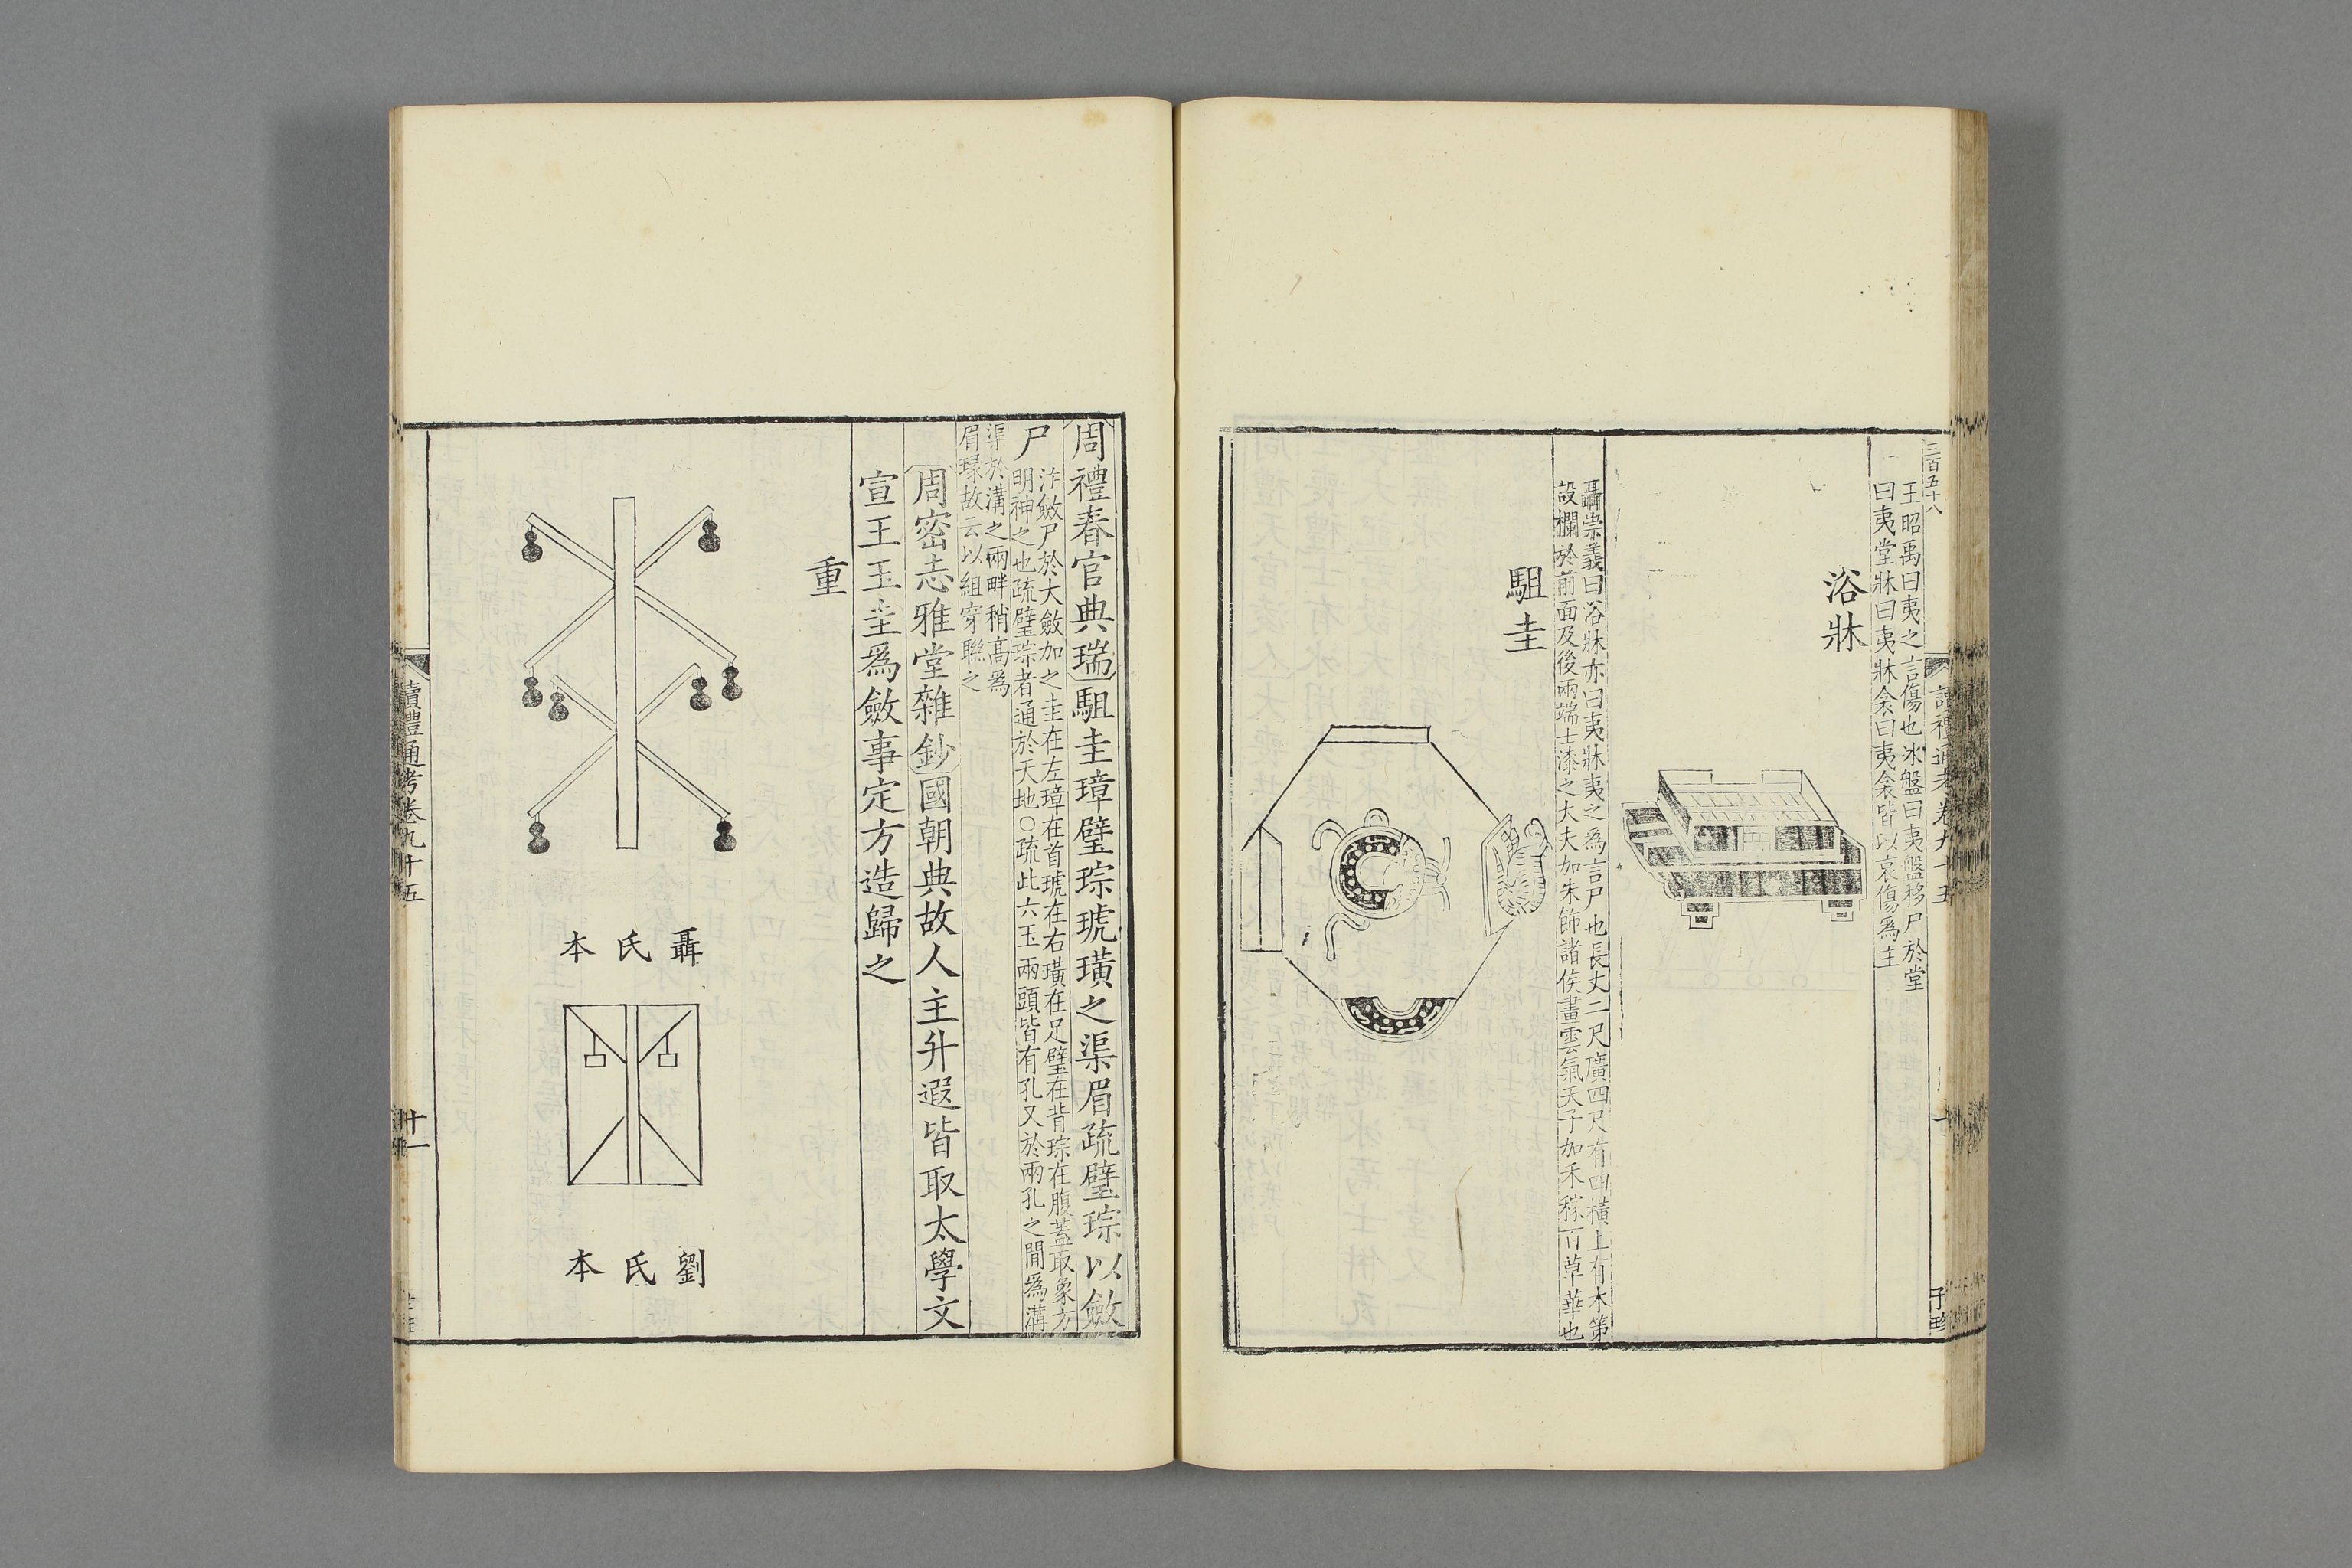 三百五十八
王昭禹曰夷之言傷也冰盤曰夷盤移尸於堂
曰夷堂牀曰夷牀衾曰夷衾皆以哀傷爲主
浴牀
聶崇義曰浴牀亦曰夷牀夷之爲言尸也長丈二尺廣四尺有四橫上有木第
設欄於前面及後兩端士漆之大夫加朱飾諸侯畫雲氣天子加禾稼百草華也
駔圭
讀禮通考卷九十五
周禮春官典瑞駔圭璋璧琮琥璜之渠眉疏璧琮以斂
尸
注斂尸於大斂加之圭在左璋在首琥在右璜在足璧在背琮在腹蓋取象方
明神之也疏璧琮者通於天地○疏此六玉兩頭皆有孔又於兩孔之閒爲溝
渠於溝之兩畔稍高爲
眉瑑故云以組穿聯之
周密志雅堂雜鈔國朝典故人主升遐皆取太學文
宣王玉圭爲斂事定方造歸之
重
聶氏本
劉氏本
讀禮通考卷九十五
十一